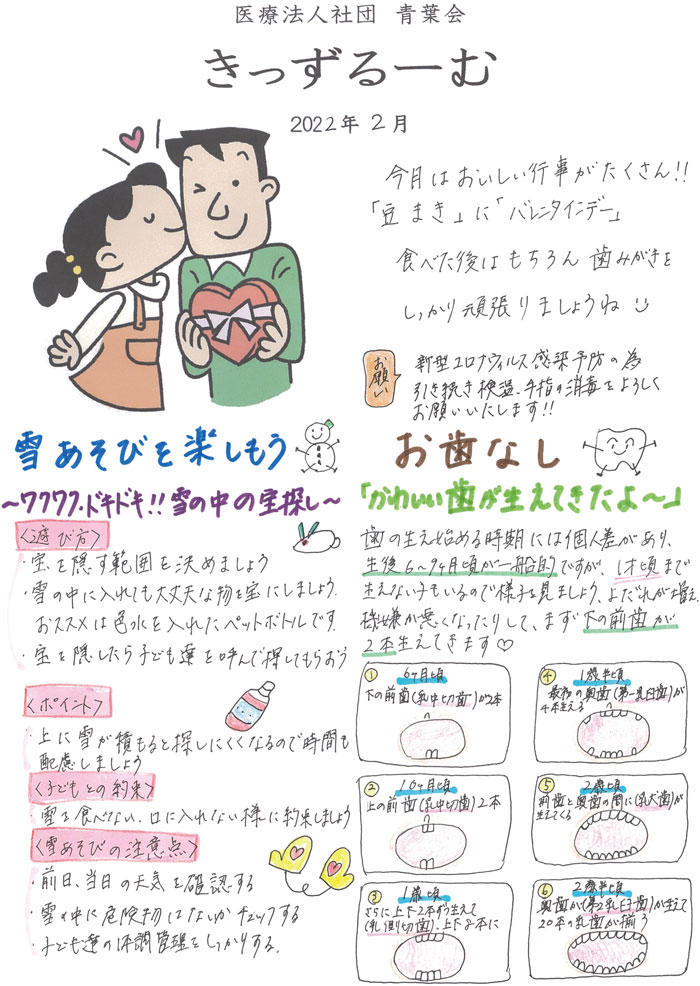 医療法人社団 青葉会
きっずるーむ
2022年 2月
今月はおいしい行事がたくさん!!
「豆まき」に「バレンタインデー」
食べた後はもちろん 歯みがきを
しっかり頑張りましょうね
お願い
新型コロナウィルス感染予防の為
引き続き検温、手指の消毒をよろしく
お願いいたします!!
雪あそびを楽しもう
～ワクワク・ドキドキ!!雪の中の宝探し～
〈遊び方〉
・宝を隠す範囲を決めましょう
・雪の中に入れても大丈夫な物を宝にしましょう。
おススメは色水を入れたペットボトルです。
・宝を隠したら子ども達を呼んで探してもらおう
〈ポイント〉
・上に雪が積もると探しにくくなるので時間も
配慮しましょう
〈子どもとの約束〉
・雪を食べない、口に入れない様に約束しましょう
〈雪あそびの注意点〉
・前日、当日の天気を確認する
・雪の中に危険物はないかチェックする
・子ども達の体調管理をしっかりする。
お歯なし
「かわいい歯が生えてきたよ～」
歯の生え始める時期には個人差があり、
生後6～9ヶ月頃が一般的ですが、1才頃まで
生えない子もいるので様子を見ましょう、よだれが増え、
機嫌が悪くなったりして、まず下の前歯が
2本生えてきます♡
① 6ヶ月頃
下の前歯(乳中切歯)が2本
② 10ヶ月頃
上の前歯(乳中切歯)2本
③ 1歳頃
さらに上下2本ずつ生えて
(乳側切歯)、上下8本に
④ 1歳半頃
最初の奥歯(第一乳臼歯)が
4本生える
⑤ 2歳頃
前歯と奥歯の間に(乳犬歯)が
生えてくる
⑥ 2歳半頃
奥歯が(第2乳臼歯)が生えて
20本の乳歯が揃う